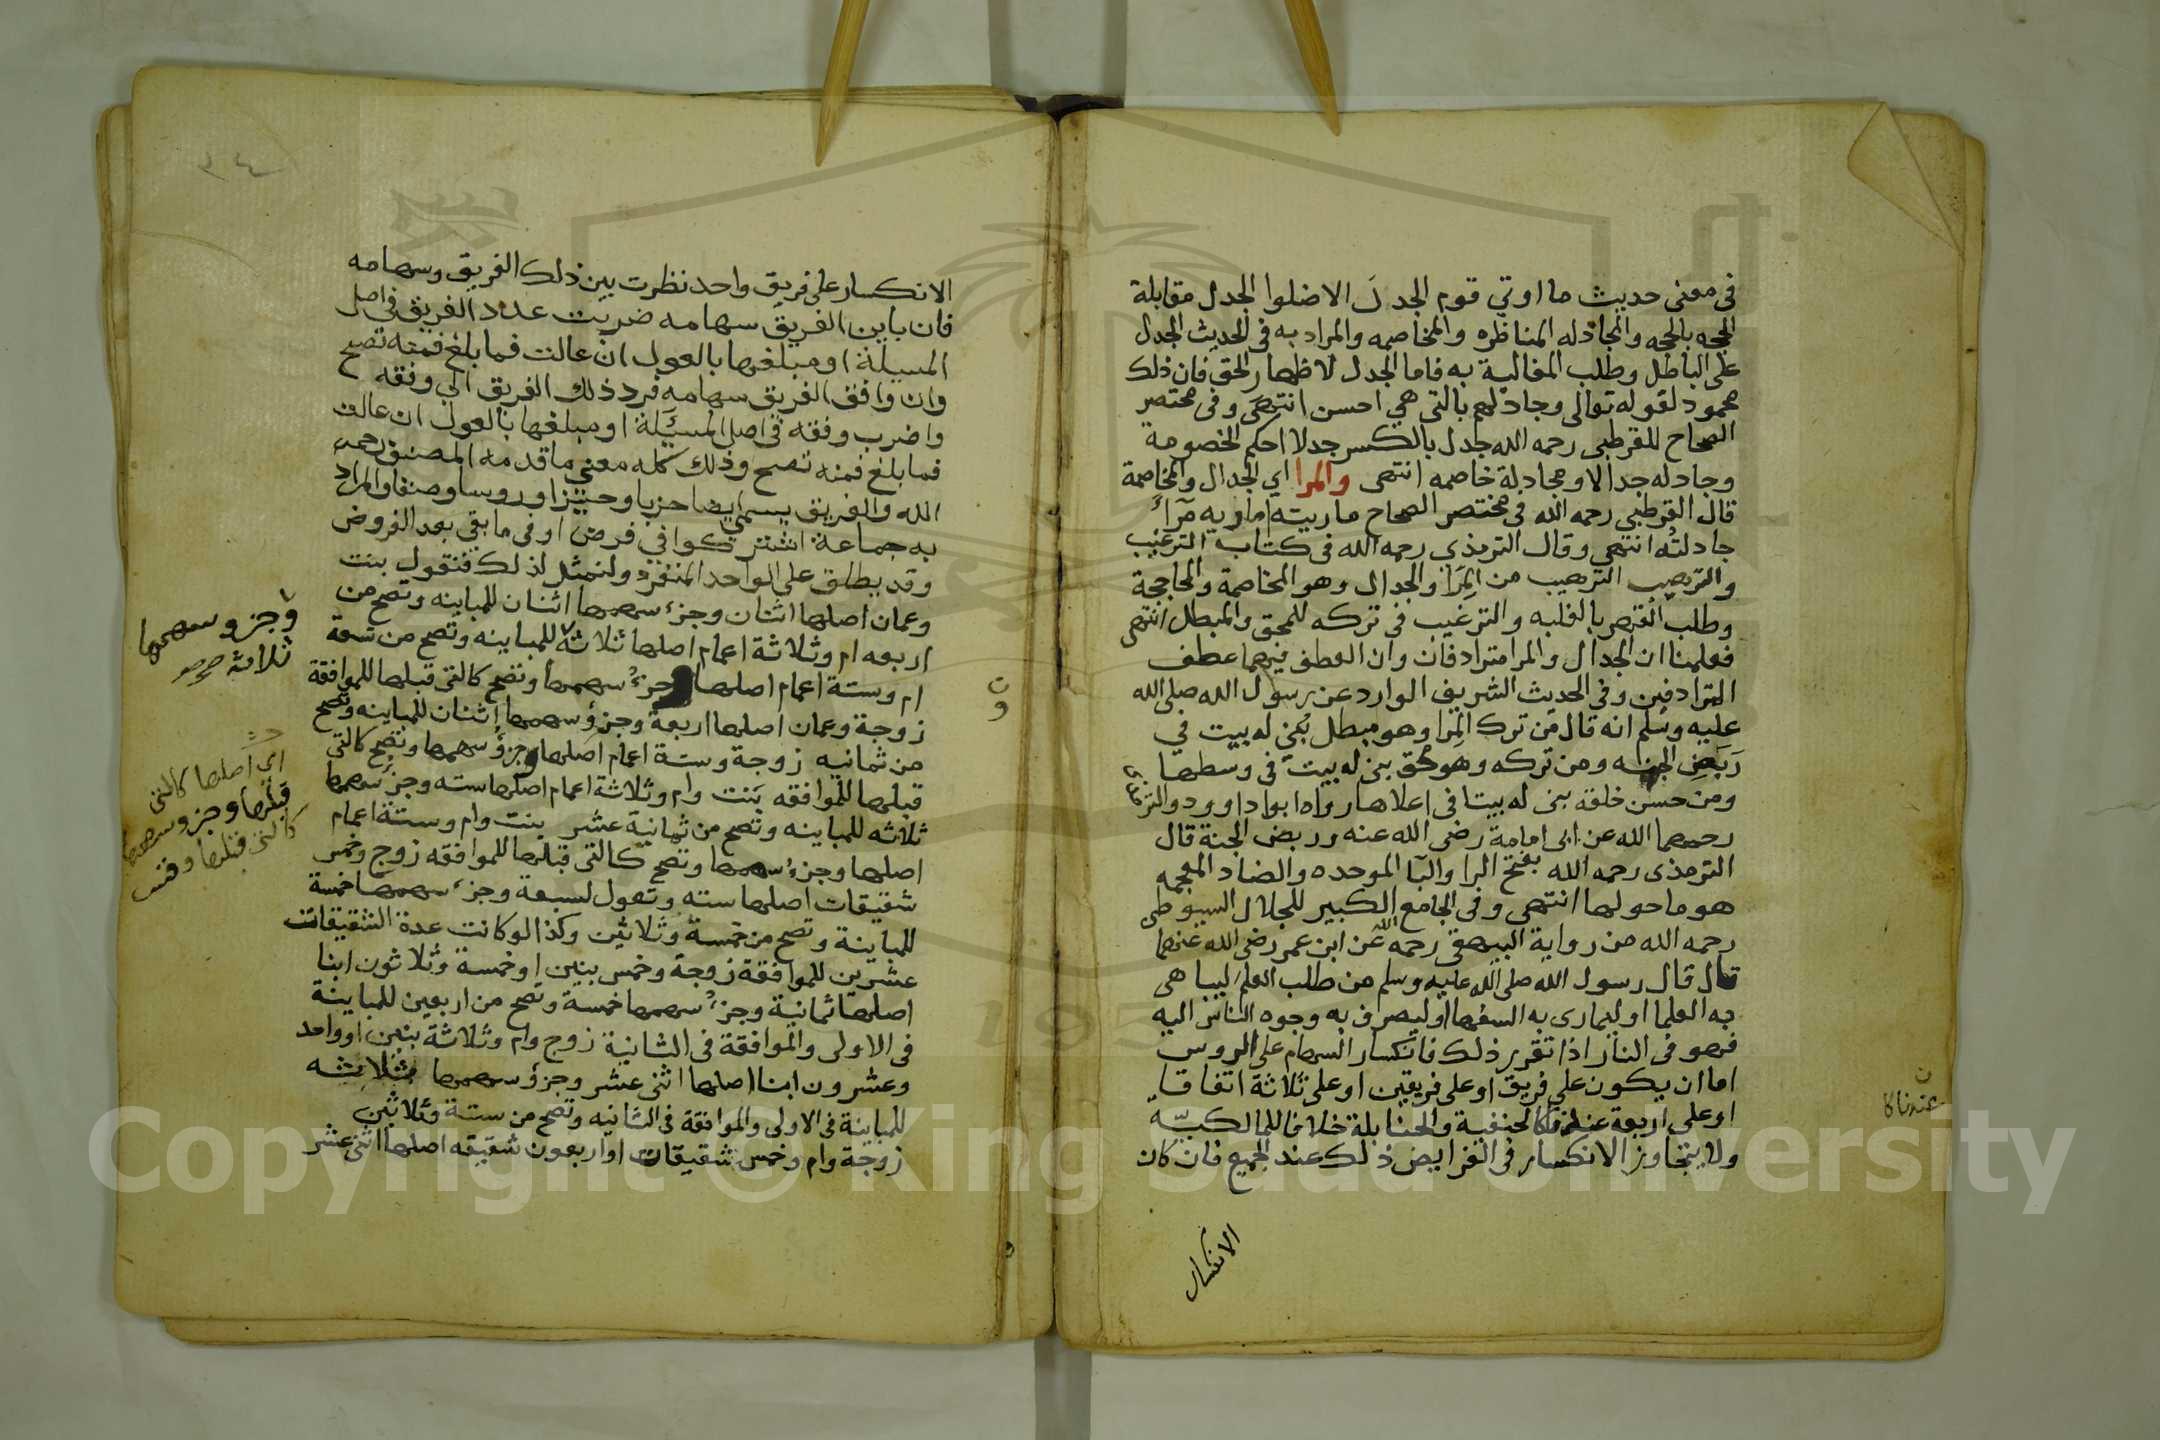 في معنى حديث ما اوتي قوم الجدل الا ضلوا الجدل مقابلة
الحجه بالحجه والمجادله المناظره والمخاصمه والمراد به في الحديث الجدل
على الباطل وطلب المغالبة به فاما الجدل لاظهار الحق فان ذلك
محمود لقوله تعالى وجادلهم بالتي هي احسن انتهى وفي مختصر
الصحاح للقرطبي رحمه الله جدل بالكسر جدلا احكم الخصومة
وجادله جدالا ومجادلة خاصمه انتهى والمرا اي الجدال والمخاصمة
قال القرطبي رحمه الله في مختصر الصحاح ماريته اماريه مرآء
جادلته انتهى وقال الترمذي رحمه الله في كتاب الترغيب
والترهيب الترهيب من المِرَا والجدال وهو المخاصمة والمحاججة
وطلب القهر بالغلبه والترغيب في تركه للمحق والمبطل انتهى
فعلمنا ان الجدال والمرا مترادفان وان العطف فيهما عطف
المترادفين وفي الحديث الشريف الوارد عن رسول الله صلى الله
عليه وسلم انه قال من ترك المِرا وهو مبطل بُنِيَ له بيت في
رَبَضِ الجنه ومن تركه وهو محق بني له بيت في وسطها
ومن حسن خلقه بني له بيتا في اعلاها رواه ابو داوود والترمذي
رحمهما الله عن ابي امامة رضي الله عنه وربض الجنة قال
الترمذي رحمه الله بفتح الرا والبا الموحده والضاد المعجمه
هو ما حولها انتهى وفي الجامع الكبير للجلال السيوطي
رحمه الله من رواية البيهقي رحمه الله عن ابن عمر رضي الله عنهما
قال قال رسول الله صلى الله عليه وسلم من طلب العلم ليباهي
به العلما او ليماري به السفها او ليصرف به وجوه الناس اليه
فهو في النار اذا تقرر ذلك فانكسار السهام على الروس
اما ان يكون على فريق او على فريقين او على ثلاثة اتفاقا
او على اربعة عندنا كالحنفية والحنابلة خلافا للمالكيّة
ولا يتجاوز الانكسار في الفرايض ذلك عند الجميع فان كان
الانكسار
ن
عندنا كا
الانكسار على فريق واحد نظرت بين ذلك الفريق وسهامه
فان باين الفريق سهامه ضربت عدد الفريق في اصل
المسيلة او مبلغها بالعول ان عالت فما بلغ فمنه تصح
وان وافق الفريق سهامه فرد ذلك الفريق الي وفقه
واضرب وفقه في اصل المسيلة او مبلغها بالعول ان عالت
فما بلغ فمنه تصح وذلك كله معني ما قدمه المصنف رحمه
الله والفريق يسمي ايضا حزبا وحيزا وروسا وصنفا والمراد
به جماعة اشتركوا في فرض او في ما بقي بعد الفروض
وقد يطلق على الواحد المنفرد ولنمثل لذلك فنقول بنت
وعمان اصلها اثنان وجزء سهمها اثنان للمباينه وتصح من
اربعه ام وثلاثة اعمام اصلها ثلاثة للمباينه وتصح من تسعة
ام وستة اعمام اصلها وجزء سهمها وتصح كالتي قبلها للموافقة
زوجة وعمان اصلها اربعة وجزؤ سهمها اثنان للمباينه وتصح
من ثمانيه زوجة وستة اعمام اصلها وجزؤ سهمها وتصح كالتي
قبلها للموافقه بنت وام وثلاثة اعمام اصلها سته وجزء سهمها
ثلاثه للمباينه وتصح من ثمانية عشر بنت وام وستة اعمام
اصلها وجزء سهمها وتصح كالتي قبلها للموافقه زوج وخمس
شقيقات اصلها سته وتعول لسبعة وجزء سهمها خمسة
للمباينة وتصح من خمسة وثلاثين وكذا لو كانت عدة الشقيقات
عشرين للموافقة زوجة وخمس بنين او خمسة وثلاثون ابنا
اصلها ثمانية وجزء سهمها خمسة وتصح من اربعين للمباينة
في الاولى والموافقة في الثانية زوج وام وثلاثة بنين او واحد
وعشرون ابنا اصلها اثني عشر وجزؤ سهمها ثلاثه
للمباينة في الاولى والموافقة في الثانيه وتصح من ستة وثلاثين
زوجة وام وخمس شقيقات او اربعون شقيقه اصلها اثنى عشر
وجزو سهمها
ثلاثة صح
اي اصلها كالتي
قبلها وجزو سهمها
كالتي قبلها
Copyright © King Saud University